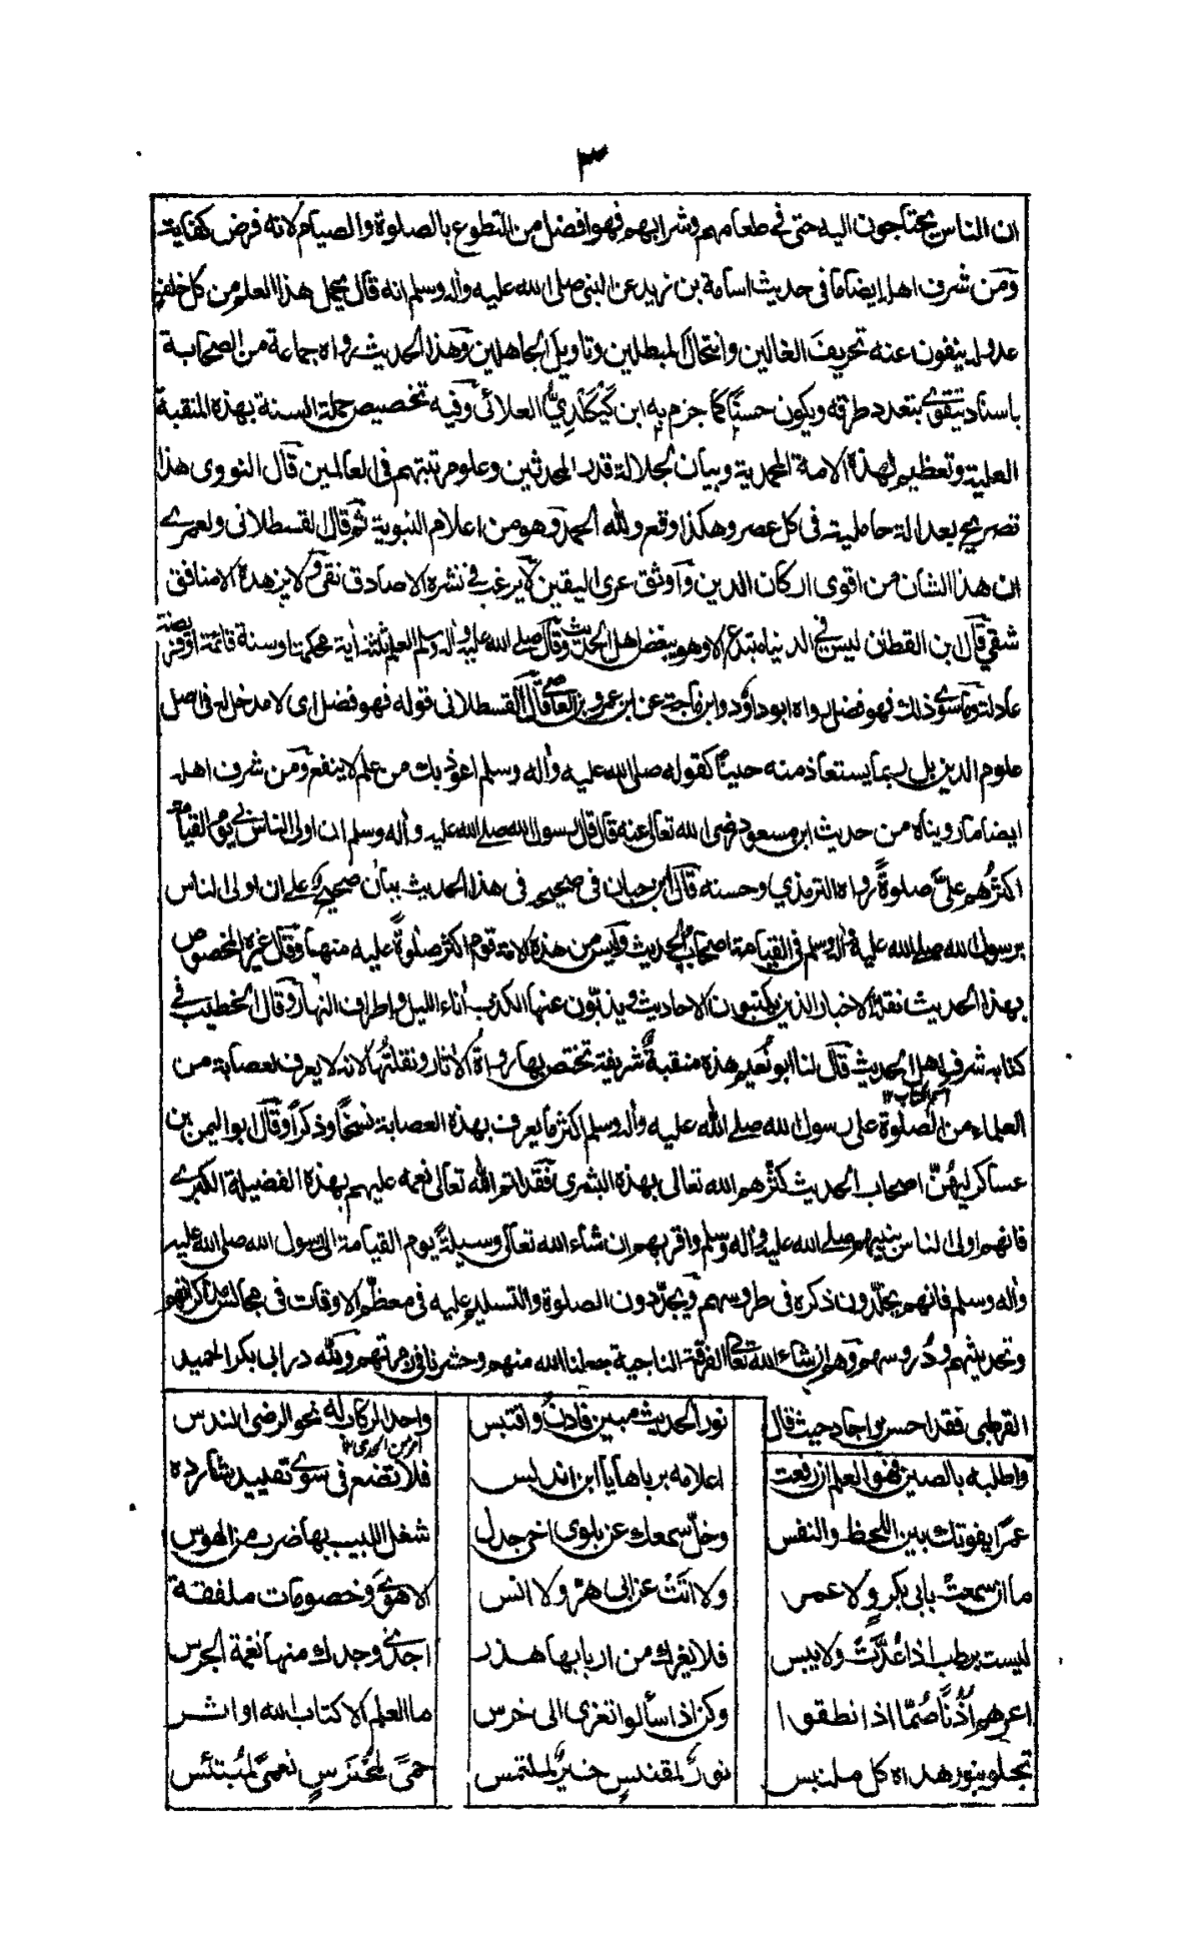 ٣
ان الناس يحتاجون اليه حتى في طعامهم وشرابهم فهو افضل من التطوع بالصلوة والصيام لانه فرض كفاية
ومن شرف اهله ايضا ما في حديث اسامة بن زيد عن النبي صلى الله عليه واله وسلم انه قال يحمل هذا العلم من كل خلف
عدوله ينفون عنه تحريف الغالين وانتحال المبطلين وتاويل الجاهلين وهذا الحديث رواه جماعة من الصحابة
باسناد يتقوى بتعدد طرقه ويكون حسنًا كما جزم به ابن كَيْكَلْدِيّ العلائى وفيه تخصيص حملة السنة بهذه المنقبة
العلية وتعظيم لهذه الامة المحمدية وبيان لجلالة قدر المحدثين وعلو مرتبتهم في العالمين قال النووى هذا
تصريح بعدالة حامليه فى كل عصر وهكذا وقع ولله الحمد وهو من اعلام النبوية ثم قال القسطلانى ولعمرے
ان هذا الشان من اقوى اركان الدين واوثق عرى اليقين لا يرغب فے نشره الا صادق نقى ولا يزهده الا منافق
شقي قال ابن القطان ليس فے الدنيا مبتدع الا وهو يبغض اهل الحديث وقال صلے الله عليه واله وسلم العلم ثلثة اية محكمة او سنة قائمة او فريضة
عادلة وما سوے ذلك فهو فضل رواه ابو داؤد وابن ماجة عن ابن عمرو بن العاص قال القسطلانى قوله فهو فضل اى لا مدخل له فى اصل
علوم الدين بل ربما يستعاذ منه حينا كقوله صلى الله عليه واله وسلم اعوذ بك من علم لا ينفع ومن شرف اهله
ايضا ما رويناه من حديث ابن مسعود رضى الله تعالى عنه قال قال رسول الله صلے الله عليه واله وسلم ان اولى الناس بى يوم القيامة
اكثرُهم علىَّ صلوةً رواه الترمذي وحسنه قال ابن حبان فى صحيحه فى هذا الحديث بيان صحيح على ان اولى الناس
برسول الله صلے الله عليه واله وسلم فى القيامة اصحاب الحديث وليس من هذه الامة قوم اكثر صلوةً عليه منهم وقال غيره المخصوص
بهذا الحديث نقلة الاخبار الذين يكتبون الاحاديث ويذبّون عنها الكذب اناء الليل واطراف النهار وقال الخطيب فے
كتابه شرف اهل الحديث قال لنا ابو نُعَيم هذه منقبةٌ شريفة تختص بها رواةُ الاثار ونقلتُها لانه لا يعرف لعصابة من
اسم الكتاب ١٢
العلماء من الصلوة على رسول الله صلے الله عليه واله وسلم اكثر ما يعرف بهذه العصابة نسخًا وذكرًا وقال ابو اليمن بن
عساكر لِيَهُنّ اصحاب الحديث كثّرهم الله تعالى بهذه البشرى فقد اتم الله تعالى نعمه عليهم بهذه الفضيلة الكبرے
فانهم اولى الناس بنبيهم صلے الله عليه واله وسلم واقربهم ان شاء الله تعالى وسيلةً يوم القيامة الى رسول الله صلى الله عليه
واله وسلم فانهم يخلّدون ذكره فى طروسهم ويجدّدون الصلوة والتسليم عليه فى معظم الاوقات فى مجالس مذاكرتهم
وتحديثهم ودُروسهم وهم ان شاء الله تعالى الفرقة الناجية جعلنا الله منهم وحشرنا فى زمرتهم ولله در ابى بكر الحميد
القرطبى فقد احسن واجاد حيث قال
نور الحديث مبين فادنُ واقتبس
واحد الركاب له نحو الرضى الندس
امر من الحدى ١٢
واطلبه بالصين فهو العلم ان رفعت
اعلامه برباها يا ابن اندلس
فلا تضع فى سوے تقييد شارده
عمرًا يفوتك بين اللحظ والنفس
وخلّ سمعك عن بلوى اخى جدل
شغل اللبيب بها ضرب من الهوس
ما ان سمعتْ بابى بكر ولا عمر
ولا اتتْ عن ابى هرّ ولا انس
الا هوًى وخصومات ملفقة
ليست برطب اذا عُدَّتْ ولا يبس
فلا يغرك من اربابها هذر
اجدى وجدك منها نغمة الجرس
اعرهم اُذُنًا صُمّا اذا نطقوا
وكن اذا سألوا تغزى الى خرس
ما العلم الا كتاب الله او اثر
تجلو بنور هداه كل ملتبس
نورٌ لمقتبسٍ خيرٌ لملتمس
حمىً لمُحْتَرسٍ نعمىً لمُبتئس